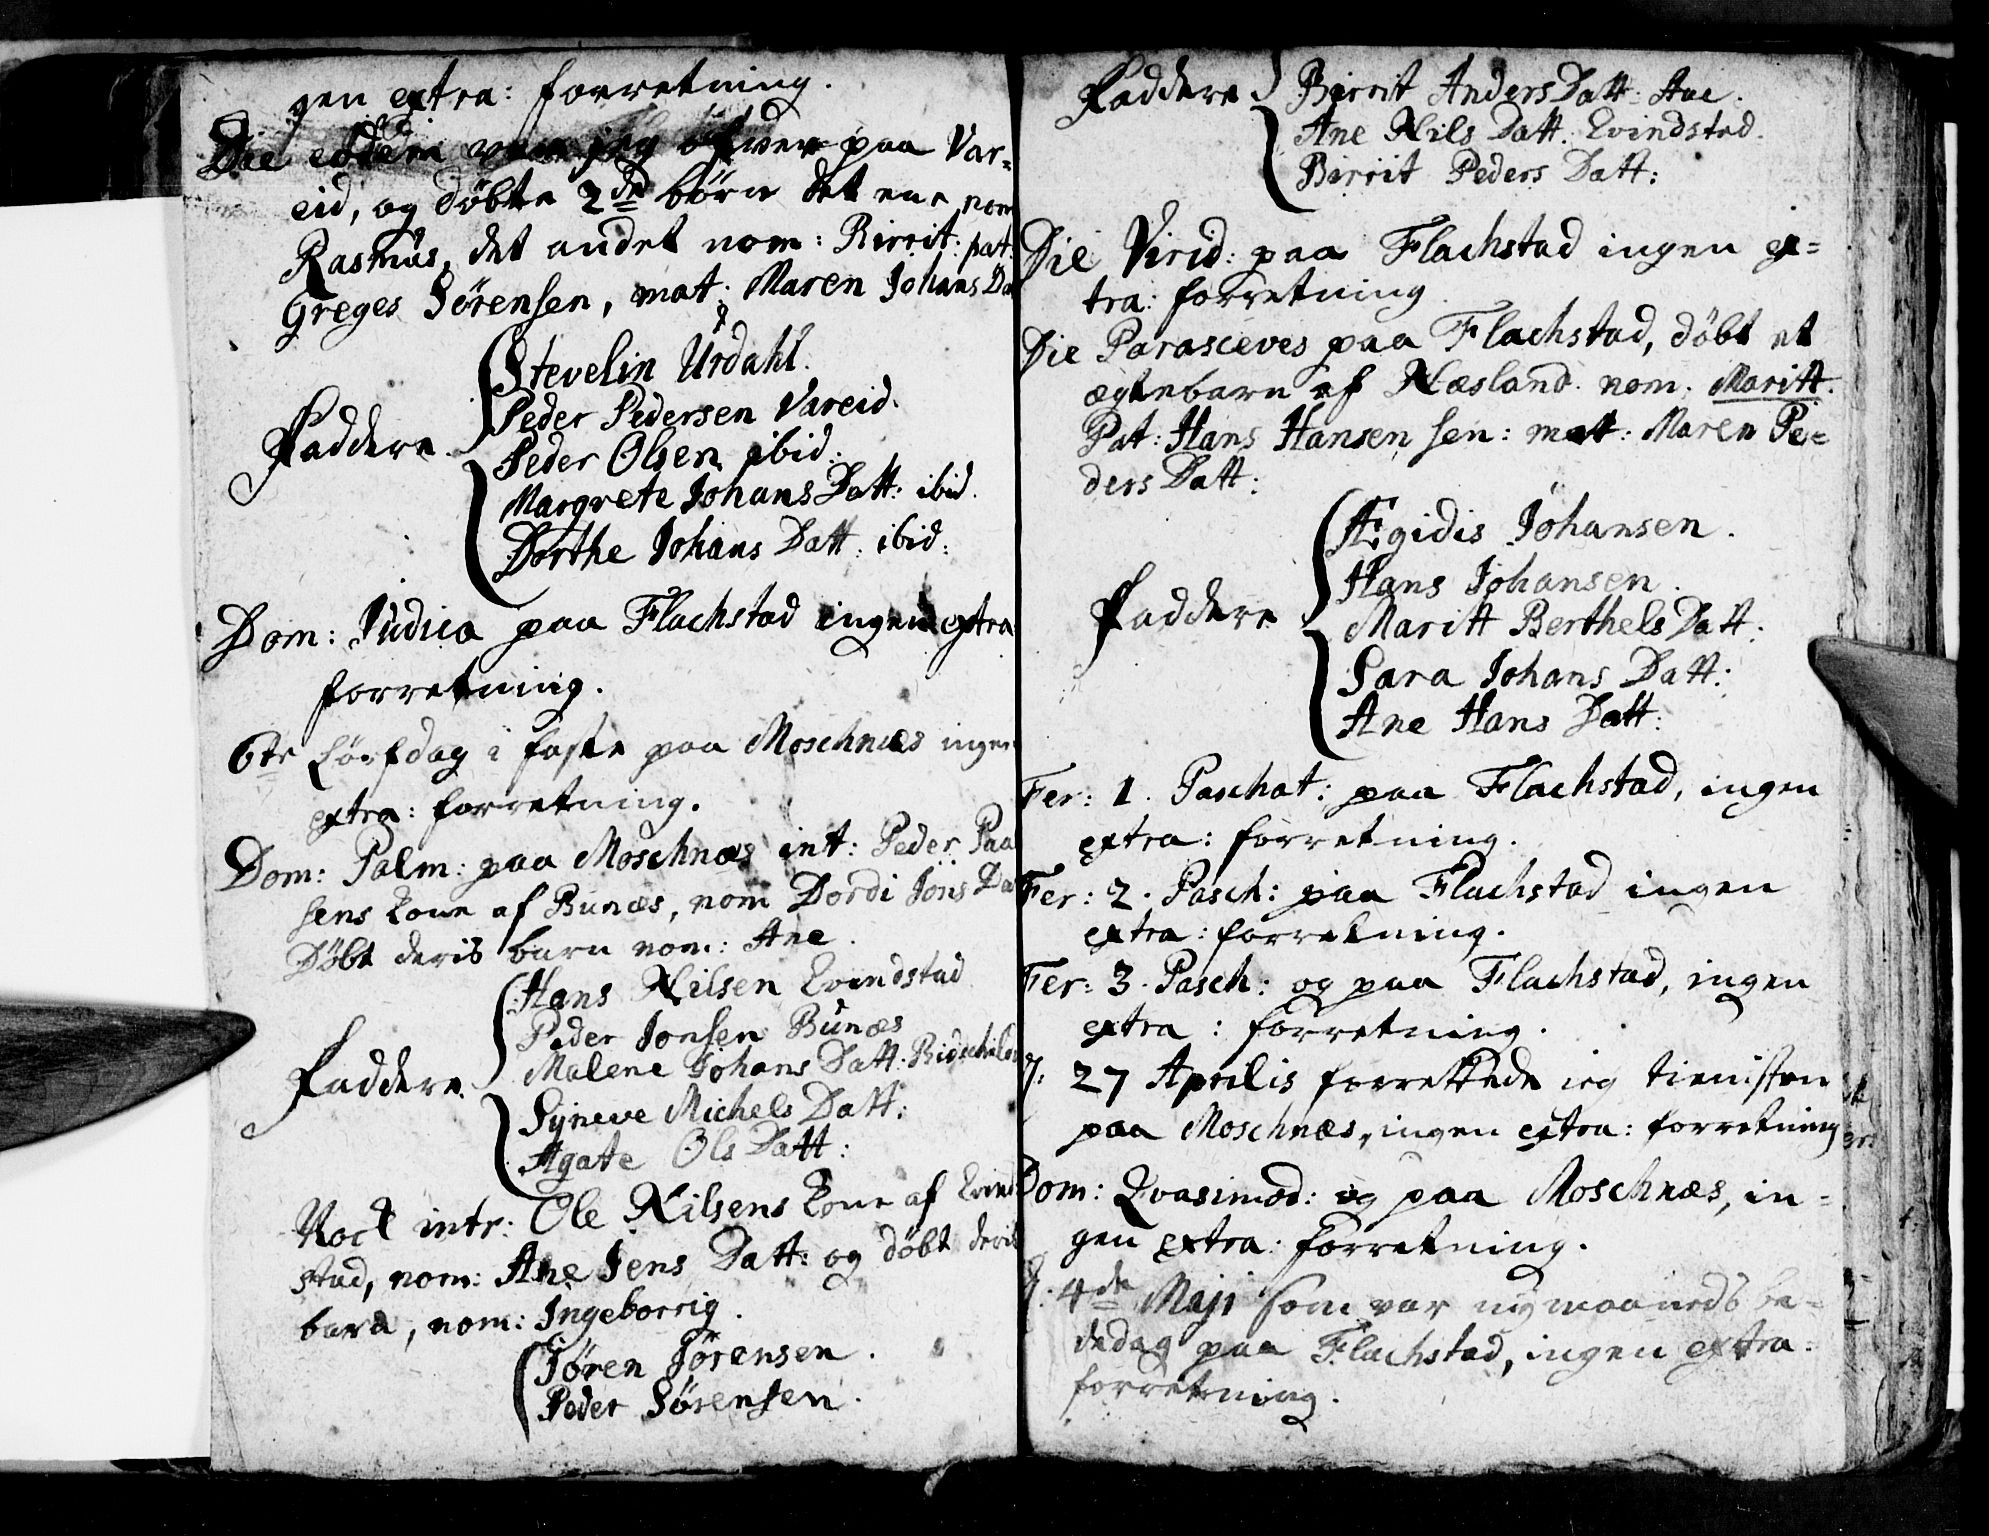 gen extra: forretning.
Die eodem var jeg öfver paa Var=
eid, og döbte 2de börn det ene nom
Rasmus, det andet nom: Birrit: pat:
Greges Sörensen, mat: Maren Johans Da
Stevelin Urdahl.
Peder Pedersen Vareid.
Faddere
Peder Olsen ibid:
Margrete Johans Datt: ibid.
Dorthe Johans Datt: ibid:
Dom: Judica paa Flachstad ingen extra
forretning.
6te Löfdag i faste paa Moschnæs ingen
extra: forretning.
Dom: Palm: paa Moschnæs int: Peder Paa
sens kone af Bunæs, nom Dordi Jons Da
Döbt deris barn nom: Ane.
Hans Nilsen Evindstad
Peder Jonsen Bunæs
Faddere
Malene Johans Datt:
Syneve Michels Datt:
Agate Ols Datt:
Nock intr: Ole Nilsens kone af Evind
stad, nom: Ane Jens Datt: og döbt deris
barn, nom: Ingeborrig.
Sören Sörensen.
Peder Sörensen.
Faddere
Birrit Anders Datt: Aae.
Ane Nils Datt: Evindstad.
Birrit Peders Datt:
Die Virid: paa Flachstad ingen ex=
tra: forretning.
Die Parasceves paa Flachstad, döbt et
ægtebarn af Næsland nom: Maritt.
Pat: Hans Hansen sen: matt: Maren Pe=
ders Datt:
Ægidis Johansen.
Hans Johansen.
Faddere
Maritt Berthels Datt:
Sara Johans Datt:
Ane Hans Datt:
Fer: 1. Paschat: paa Flachstad, ingen
extra: forretning.
Fer: 2. Pasch: paa Flachstad ingen
extra: forretning.
Fer: 3. Pasch: og paa Flachstad, ingen
extra: forretning.
27 Aprilis forrettede ieg tienisten
paa Moschnæs, ingen extra: forretning
Dom: Qvasimod: og paa Moschnæs, in=
gen extra: forretning.
4de Maji som var ny maaneds be=
dedag paa Flachstad, ingen extra:
forretning.